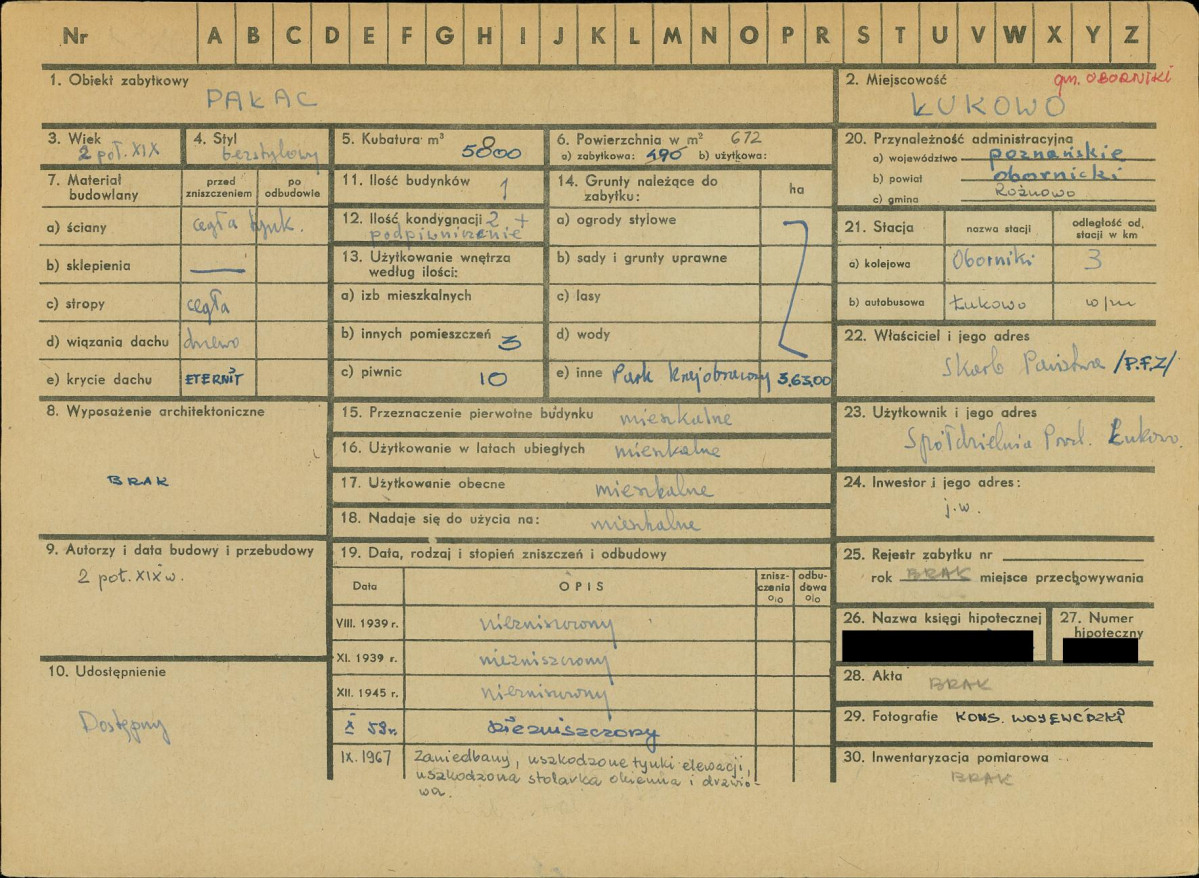 Nr A B C D E F G H I J K L M N O P R S T U V W X Y Z
1. Obiekt zabytkowy
PAŁAC
2. Miejscowość
gm. OBORNIKI
ŁUKOWO
3. Wiek
2 poł. XIX
4. Styl
bezstylowy
5. Kubatura m³
5800
6. Powierzchnia w m² 672
a) zabytkowa: 490 b) użytkowa:
7. Materiał budowlany
przed zniszczeniem
po odbudowie
a) ściany cegła tynk.
b) sklepienia —
c) stropy cegła
d) wiązania dachu drzewo
e) krycie dachu ETERNIT
8. Wyposażenie architektoniczne
BRAK
9. Autorzy i data budowy i przebudowy
2 poł. XIX w.
10. Udostępnienie
Dostępny
11. Ilość budynków 1
12. Ilość kondygnacji 2 +
podpiwniczenie
13. Użytkowanie wnętrza
według ilości:
a) izb mieszkalnych
b) innych pomieszczeń 3
c) piwnic 10
14. Grunty należące do
zabytku:
ha
a) ogrody stylowe
b) sady i grunty uprawne
c) lasy
d) wody
e) inne Park krajobrazowy 3,63,00
15. Przeznaczenie pierwotne budynku mieszkalne
16. Użytkowanie w latach ubiegłych mieszkalne
17. Użytkowanie obecne mieszkalne
18. Nadaje się do użycia na: mieszkalne
19. Data, rodzaj i stopień zniszczeń i odbudowy
Data
OPIS
znisz-
czenia
%
odbu-
dowa
%
VIII. 1939 r. niezniszczony
XI. 1939 r. niezniszczony
XII. 1945 r. niezniszczony
X 59 r. niezniszczony
IX. 1967 Zaniedbany, uszkodzone tynki elewacji,
uszkodzona stolarka okienna i drzwio-
wa.
20. Przynależność administracyjna
a) województwo poznańskie
b) powiat obornicki
c) gmina Rożnowo
21. Stacja
nazwa stacji
odległość od
stacji w km
a) kolejowa Oborniki 3
b) autobusowa Łukowo w/m
22. Właściciel i jego adres
Skarb Państwa /P.F.Z/
23. Użytkownik i jego adres
Spółdzielnia Prod. Łukowo.
24. Inwestor i jego adres:
j.w.
25. Rejestr zabytku nr
rok BRAK miejsce przechowywania
26. Nazwa księgi hipotecznej
27. Numer
hipoteczny
28. Akta
BRAK
29. Fotografie KONS. WOJEWÓDZKI
30. Inwentaryzacja pomiarowa
BRAK